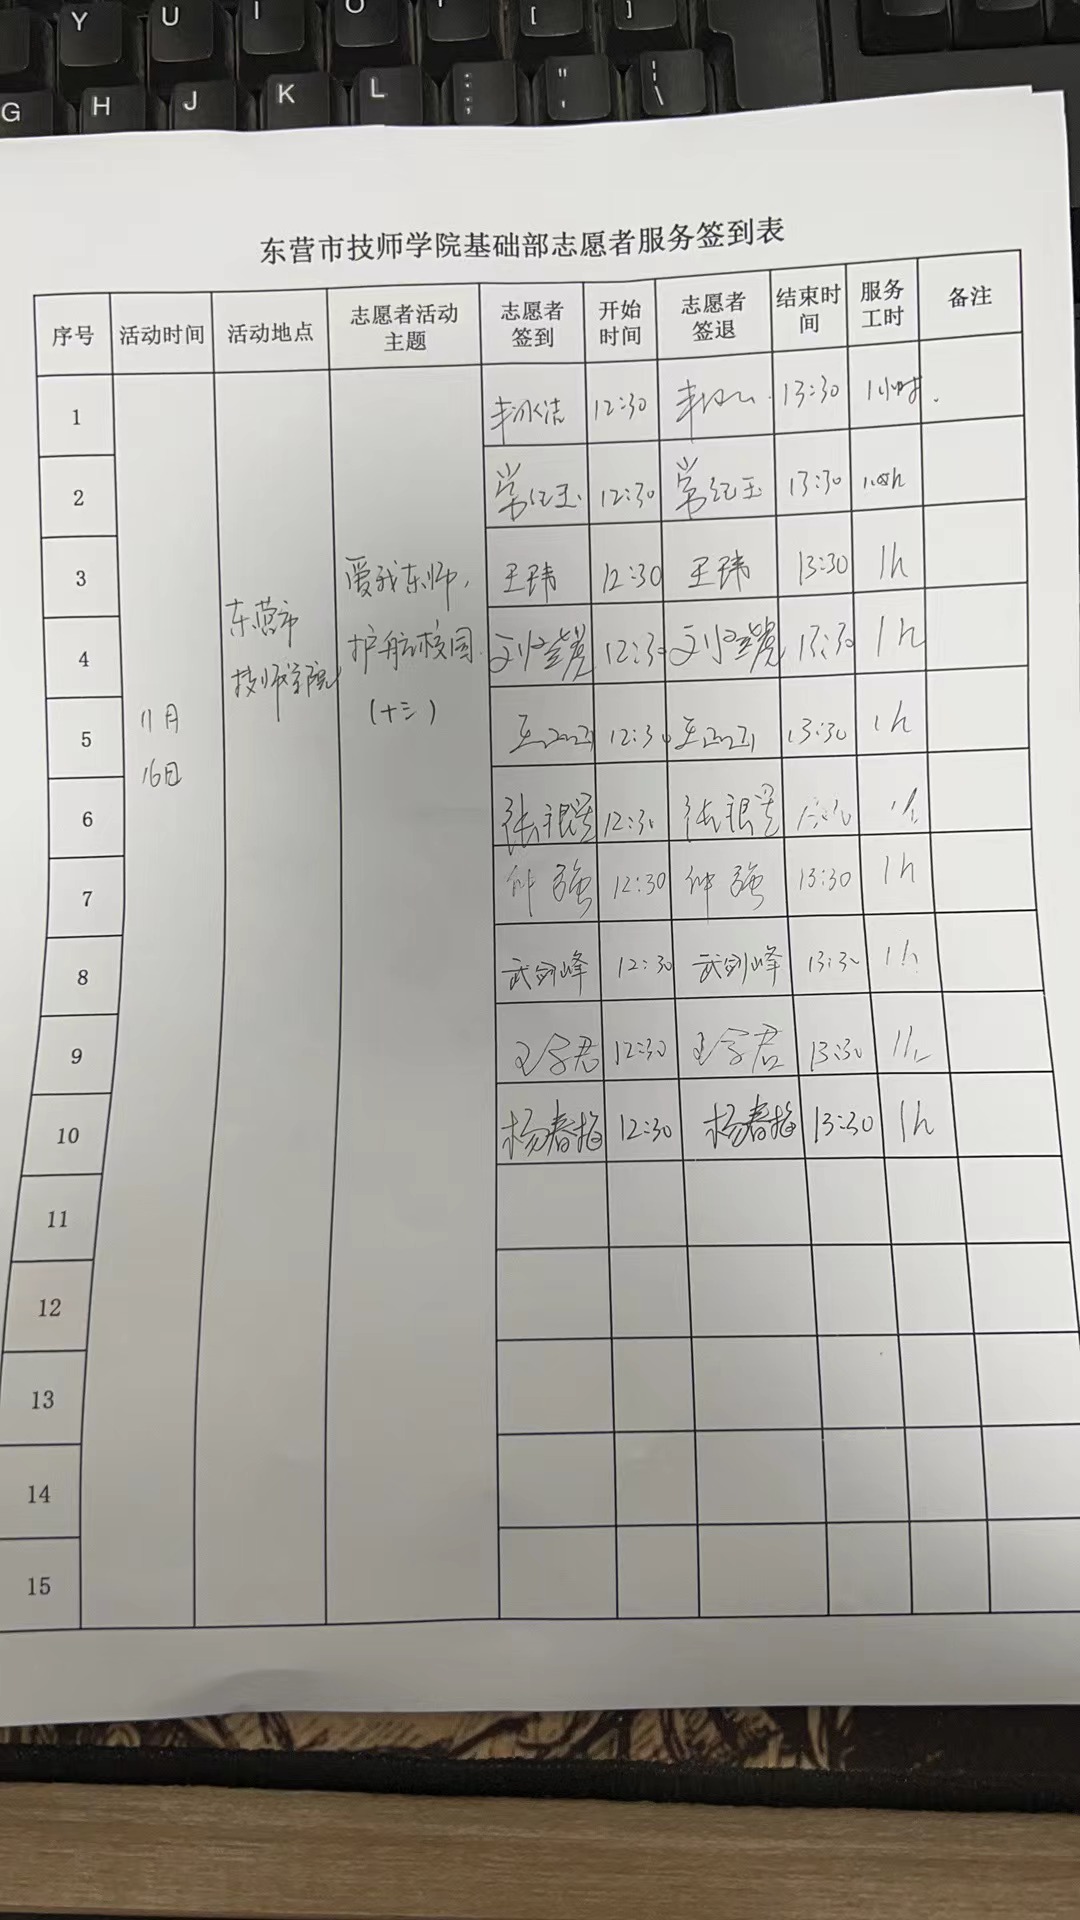 Y U I O [ ]
G H J K L : ; " ' | \
东营市技师学院基础部志愿者服务签到表
序号 活动时间 活动地点 志愿者活动主题 志愿者签到 开始时间 志愿者签退 结束时间 服务工时 备注
11月
16日
东营市
技师学院
爱我东师,
护航校园
(十三)
1 12:30 13:30 1小时
2 常纪玉 12:30 常纪玉 13:30
3 王玮 12:30 王玮 13:30 1h
4 12:30 13:30 1h
5 12:30 13:30 1h
6 张银 12:30 张银
7 仲强 12:30 仲强 13:30 1h
8 武剑峰 12:30 武剑峰 13:30 1h
9 12:30 13:30 1h
10 杨春梅 12:30 杨春梅 13:30 1h
11
12
13
14
15